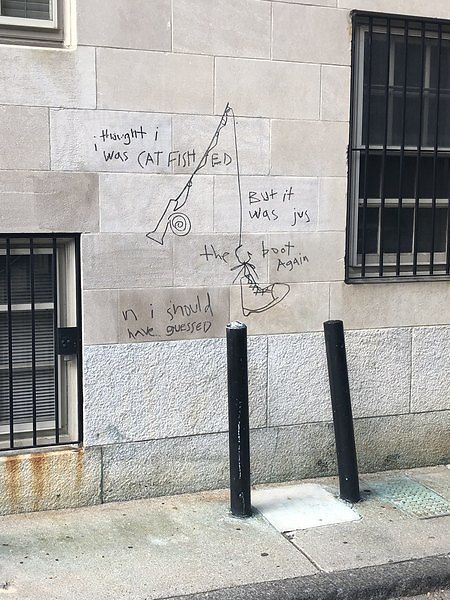 i thought i
i was CATFISHED
But it
was jus
the boot
Again
n i should
have guessed